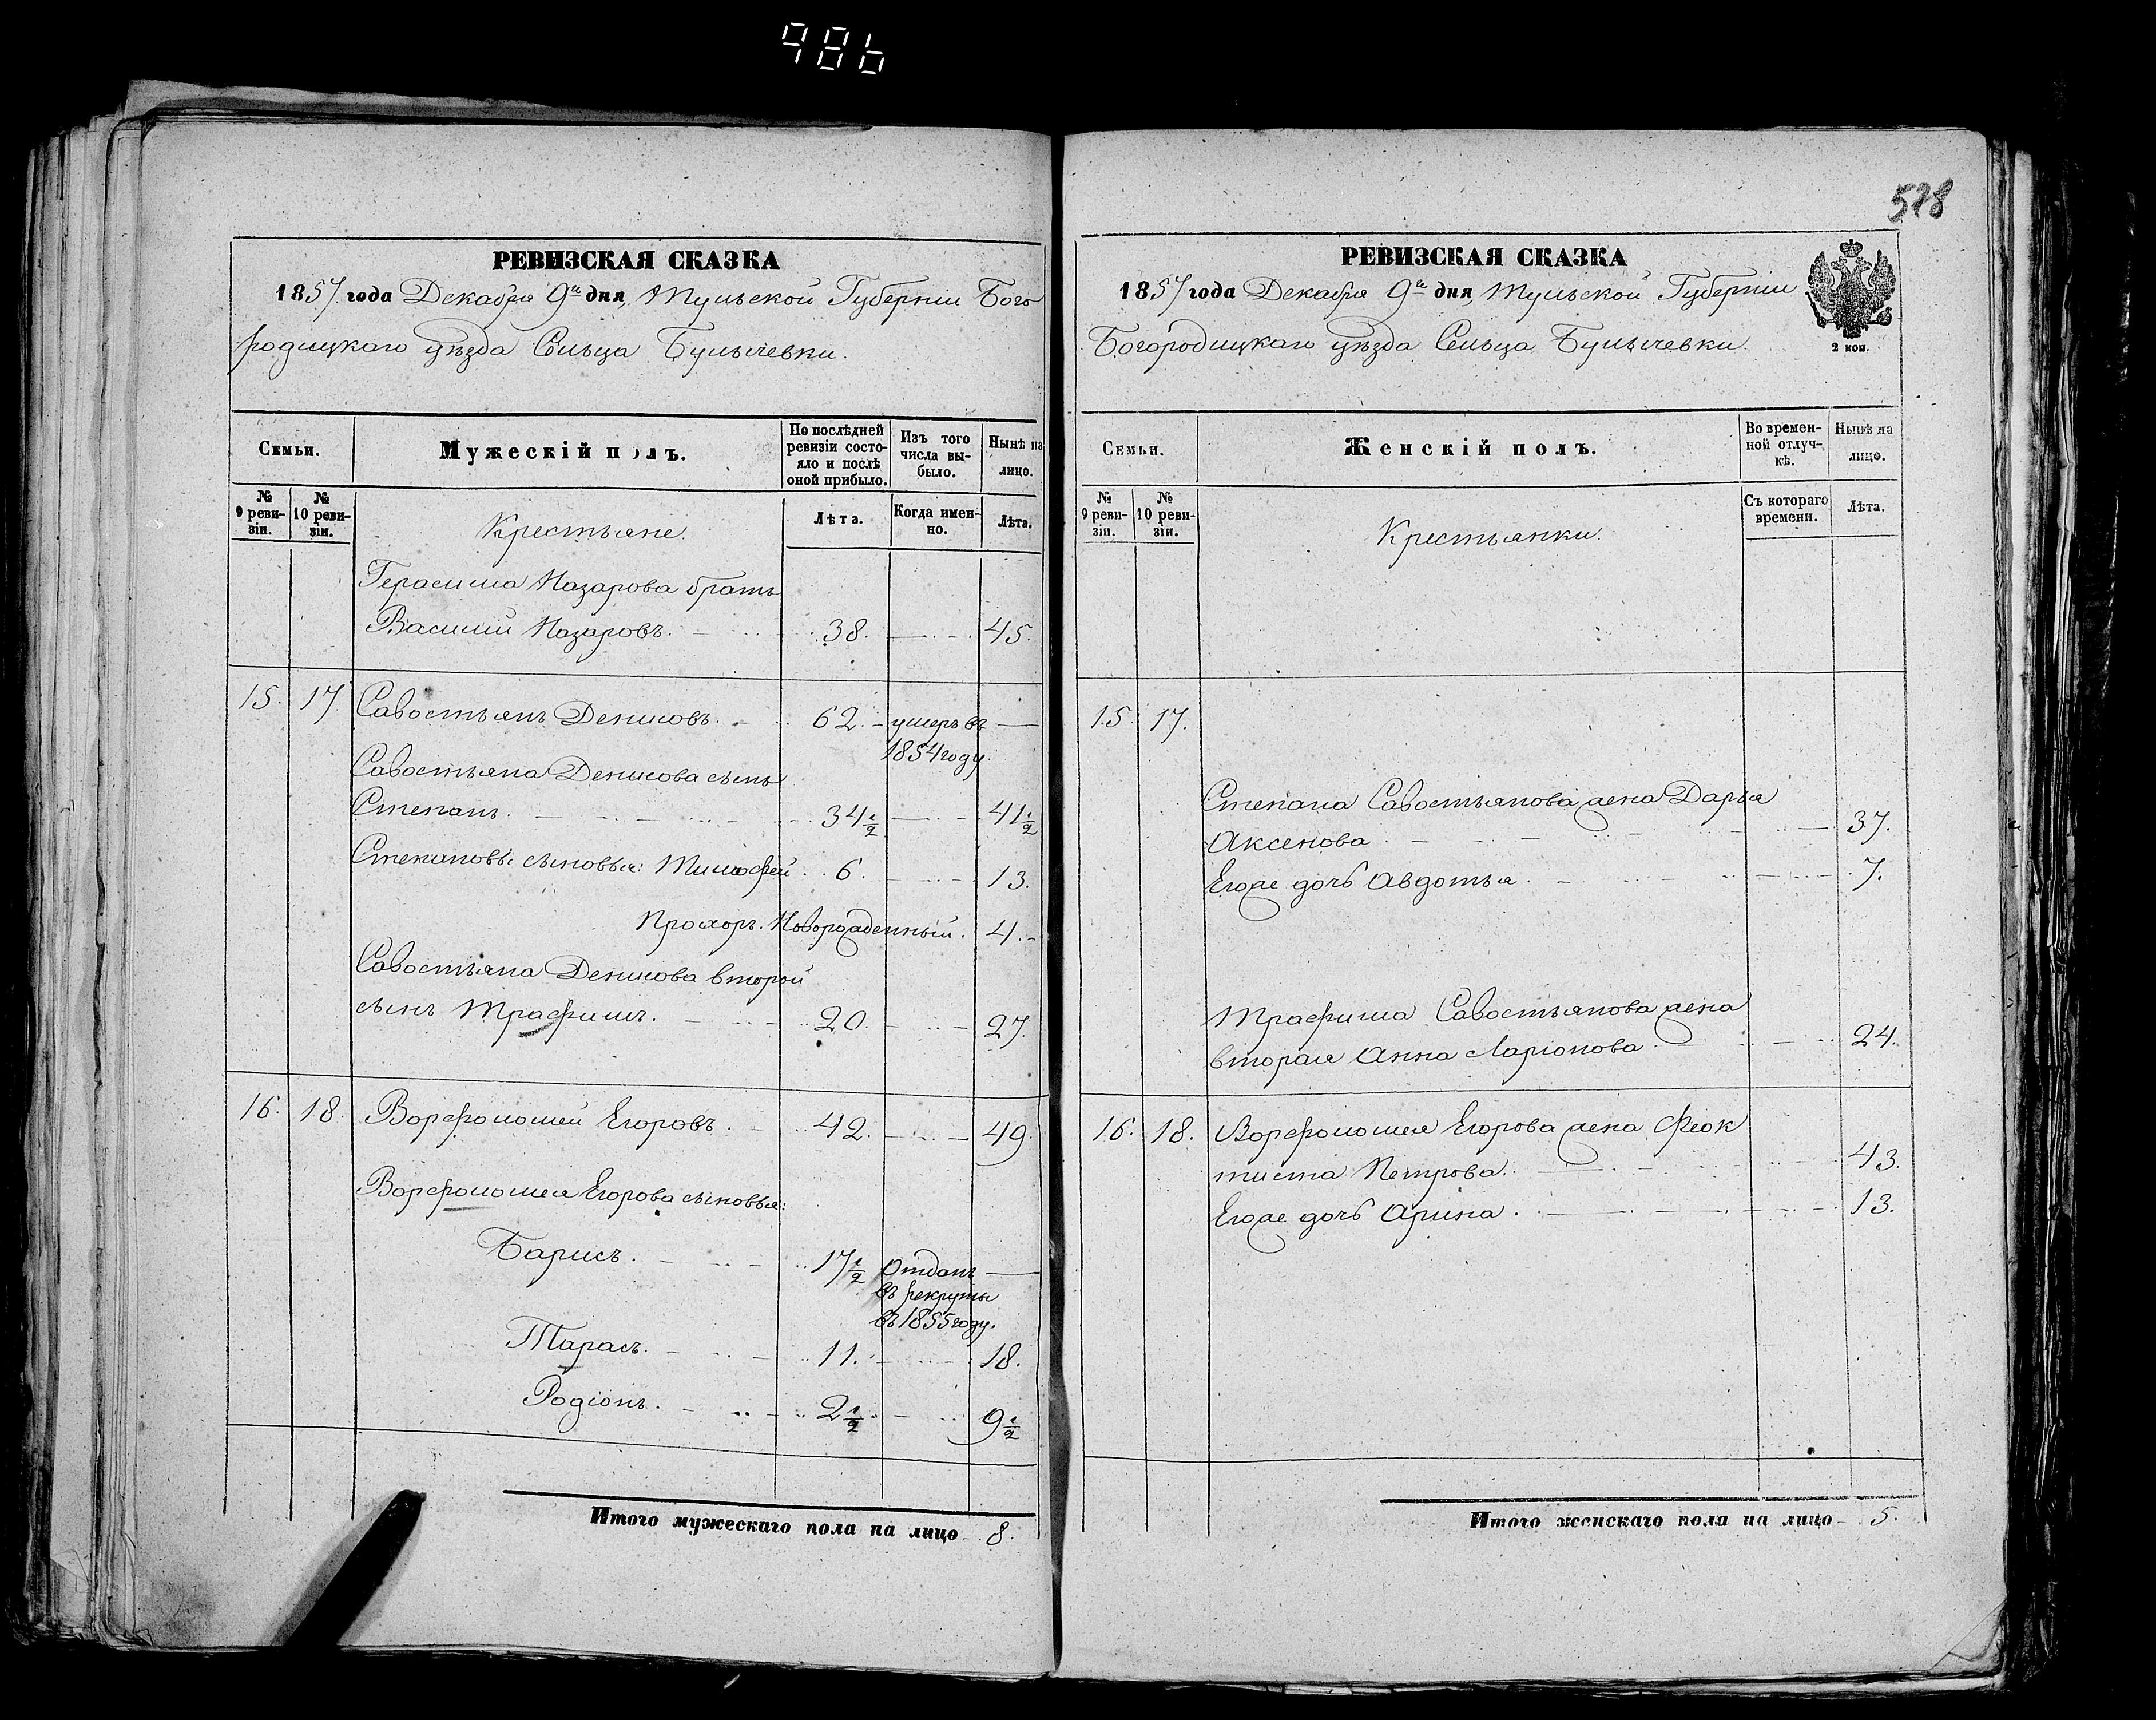 986
578
РЕВИЗСКАЯ СКАЗКА
1857 года Декабря 9го дня, Тульской Губерніи Бого
родицкаго уѣзда Сельца Булычевки.
Семьи.
Мужескій полъ.
По послѣдней
ревизіи состо-
яло и послѣ
оной прибыло.
Изъ того
числа вы-
было.
Нынѣ на
лицо.
№
9 реви-
зіи.
№
10 реви-
зіи.
Крестьяне.
Лѣта.
Когда имен-
но.
Лѣта.
Герасима Назарова братъ
Василій Назаровъ. 38. 45.
15. 17. Савостьянъ Денисовъ. 62. умеръ въ
1854 году.
Савостьяна Денисова сынъ
Степанъ. 34½ 41½
Степановы сыновья: Тимофей 6. 13.
Прохоръ. Новорожденный. 4.
Савостьяна Денисова второй
сынъ Трафимъ. 20. 27.
16. 18. Ворфоломей Егоровъ. 42. 49.
Ворфоломея Егорова сыновья:
Барисъ. 17½ Отданъ
въ рекруты
въ 1855 году.
Тарасъ. 11. 18.
Родіонъ. 2½ 9½
Итого мужескаго пола на лицо 8.
РЕВИЗСКАЯ СКАЗКА
1857 года Декабря 9го дня, Тульской Губерніи
Богородицкаго уѣзда Сельца Булычевки.
2 коп.
Семьи.
Женскій полъ.
Во времен-
ной отлуч-
кѣ.
Нынѣ на
лицо.
№
9 реви-
зіи.
№
10 реви-
зіи.
Крестьянки.
Съ котораго
времени.
Лѣта.
15. 17.
Степана Савостьянова жена Дарья
Аксенова. 37.
Егоже дочь Авдотья. 7.
Трафима Савостьянова жена
вторая Анна Ларіонова. 24.
16. 18. Ворфоломея Егорова жена Феок
тиста Петрова. 43.
Егоже дочь Арина. 13.
Итого женскаго пола на лицо 5.